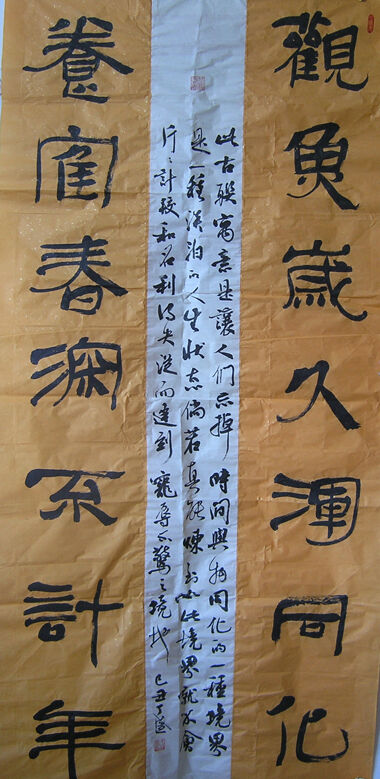 觀魚歲久渾同化
此古联寓意是讓人们忘掉時間與物同化的一種境界
是一種淡泊的人生状态倘若真能煉到如此境界就不會
斤々計较和名利得失從而達到寵辱不驚之境地 己丑
養寉春深不計年